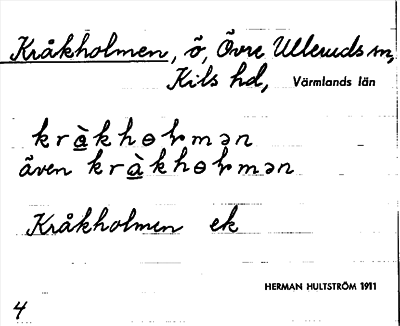 Kråkholmen, ö, Övre Ulleruds sn,
Kils hd, Värmlands län
även
Kråkholmen ek
HERMAN HULTSTRÖM 1911
4